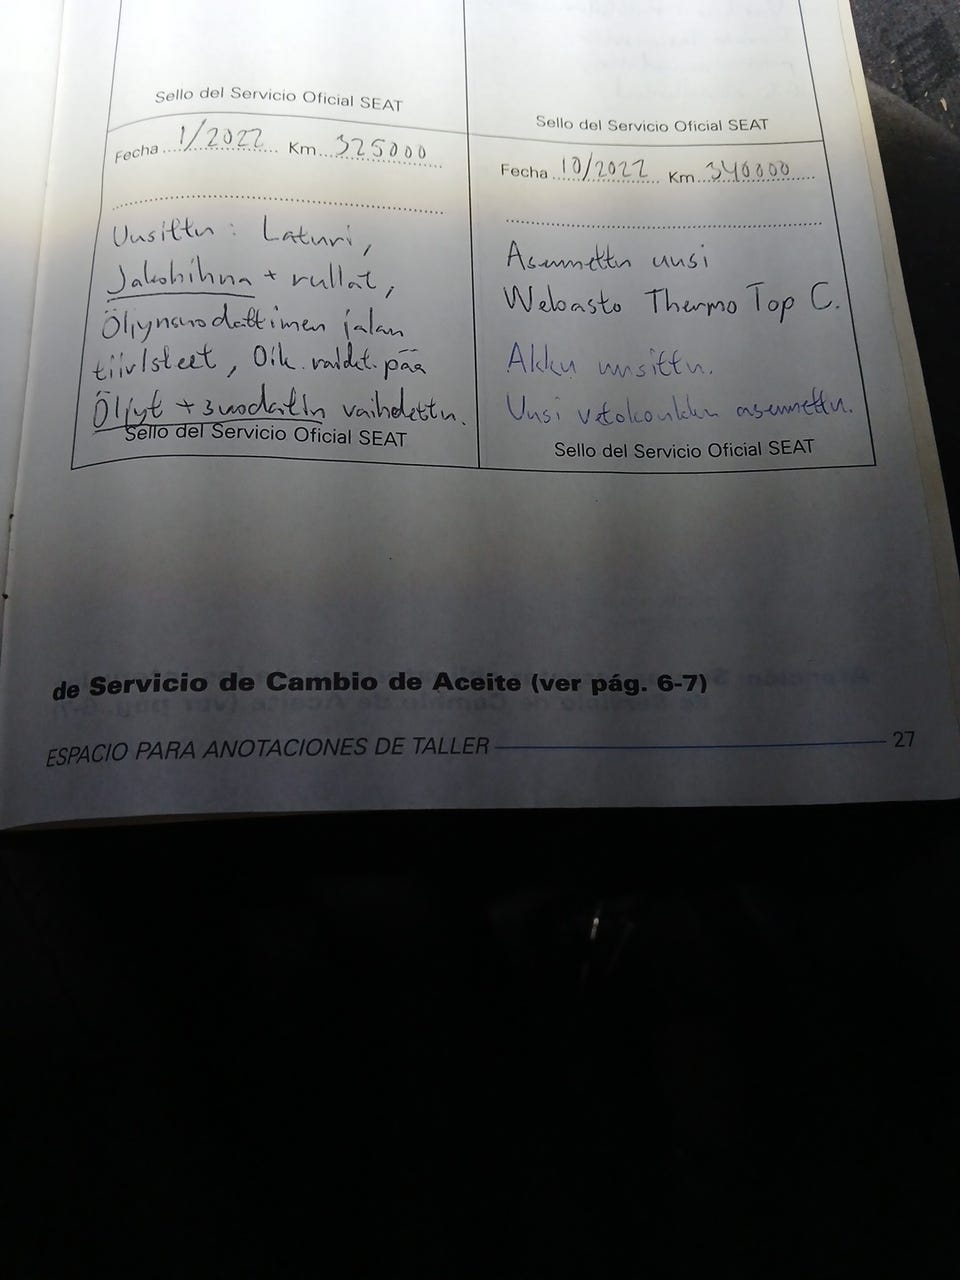 Sello del Servicio Oficial SEAT
Fecha 1/2022 Km 325000
Uusittu: Laturi,
Jakohihna + rullat,
Öljynsuodattimen jalan
tiivisteet, Oik. raidet. pää
Öljyt + suodatin vaihdettu.
Sello del Servicio Oficial SEAT
Sello del Servicio Oficial SEAT
Fecha 10/2022 Km 340000
Asennettu uusi
Webasto Thermo Top C.
Akku uusittu.
Uusi vetokoukku asennettu.
Sello del Servicio Oficial SEAT
de Servicio de Cambio de Aceite (ver pág. 6-7)
ESPACIO PARA ANOTACIONES DE TALLER 27